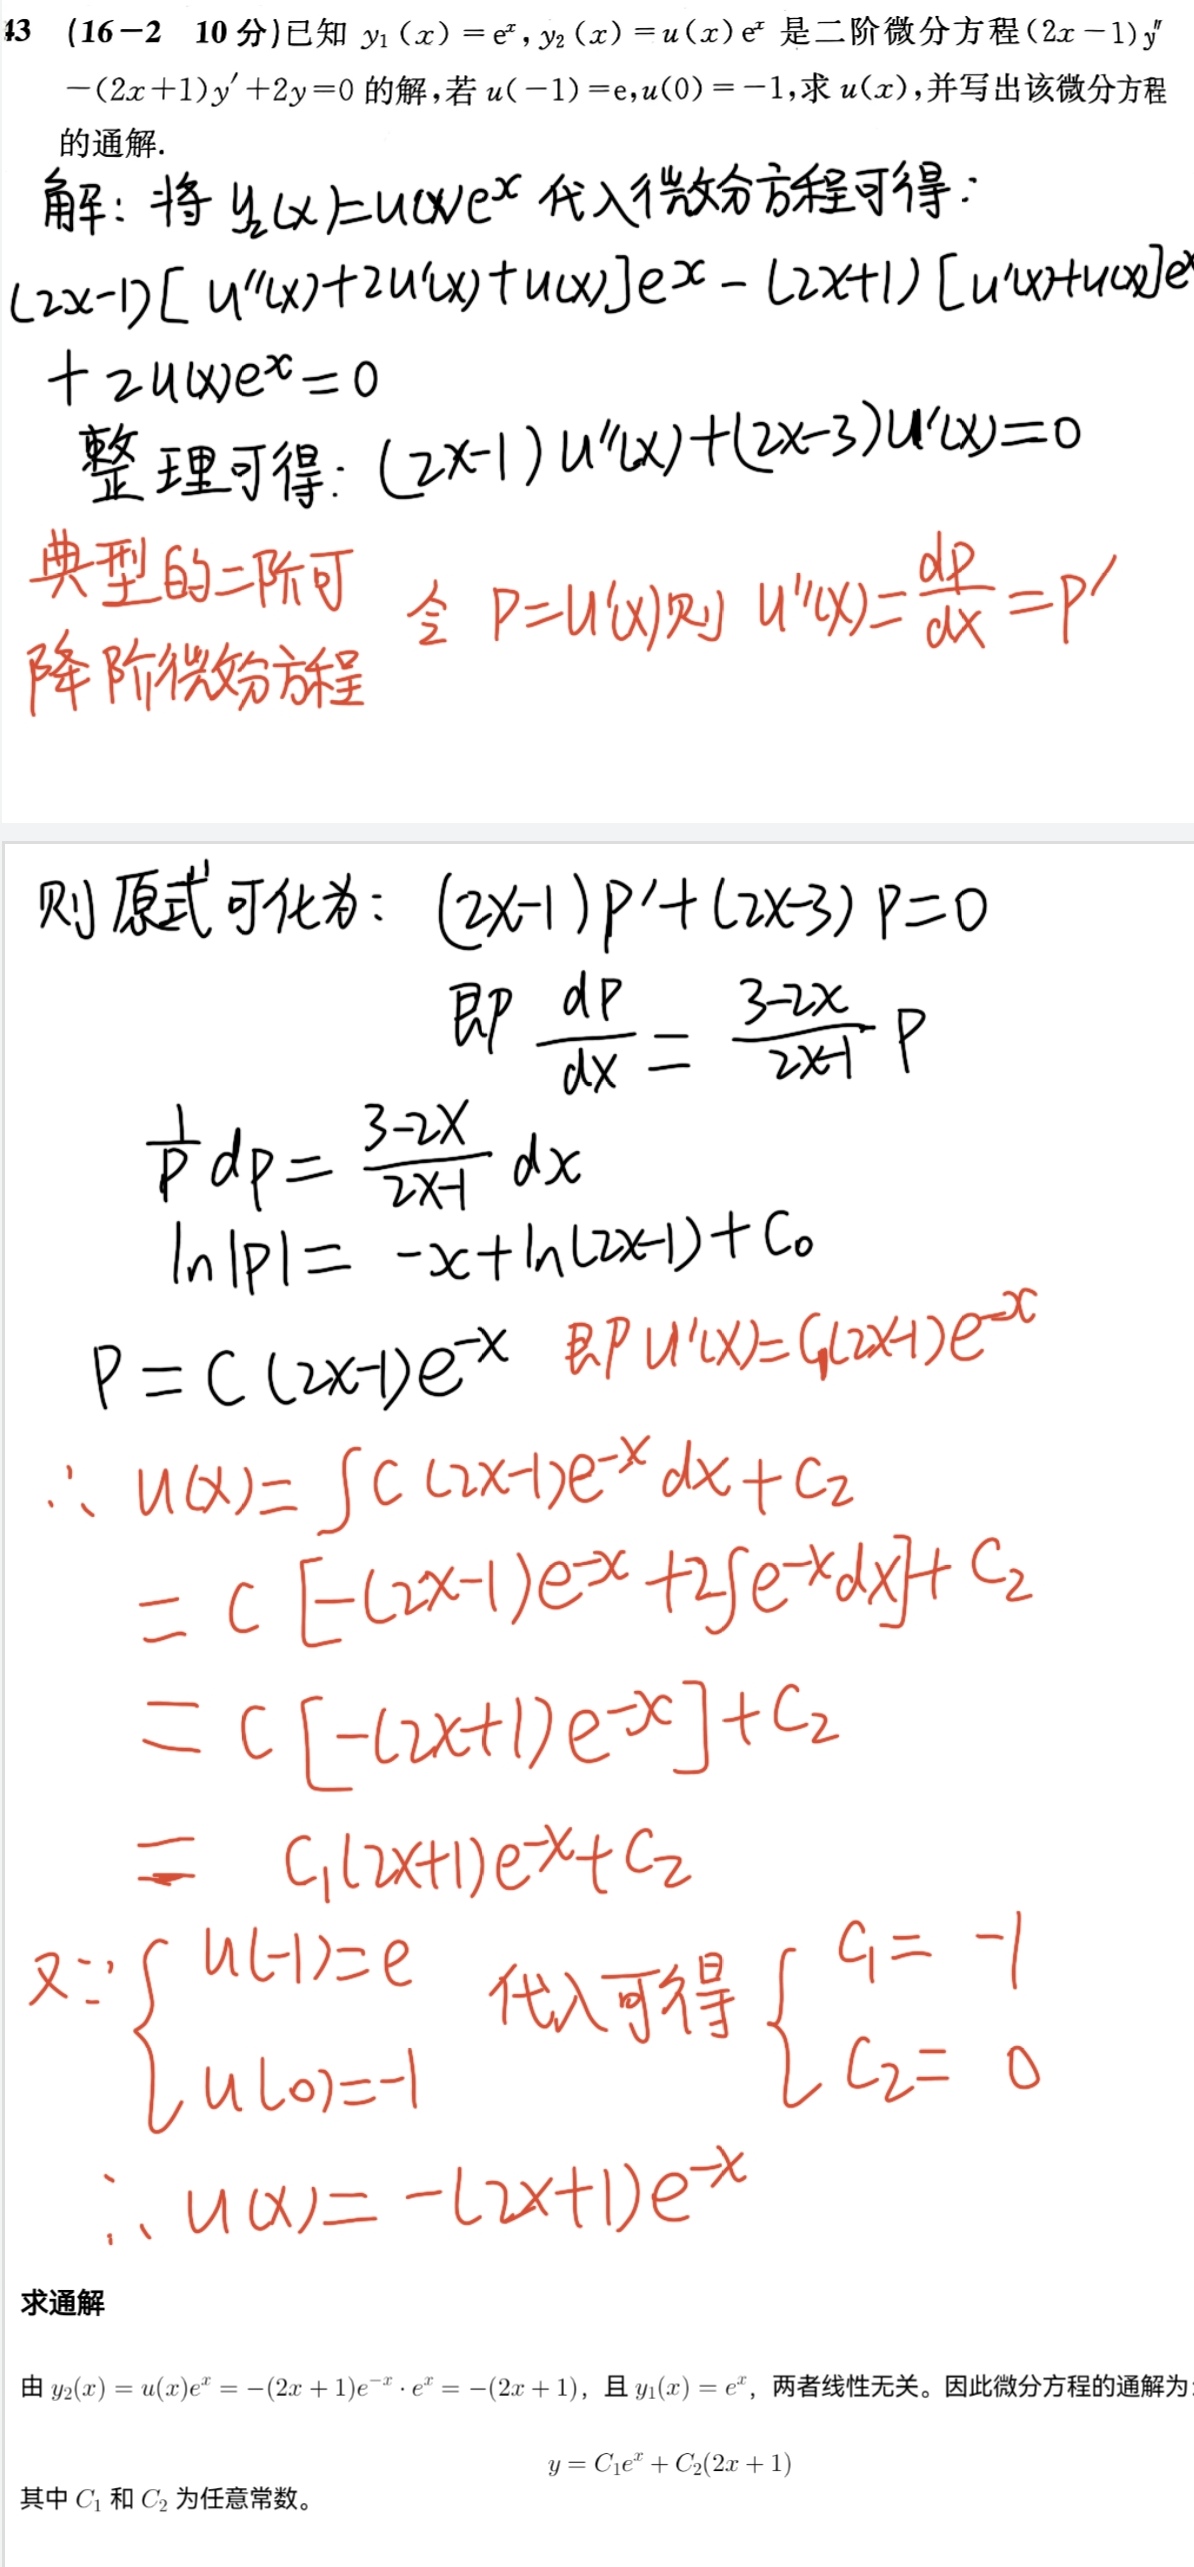 43 (16－2 10 分)已知 y₁(x)=eˣ, y₂(x)=u(x)eˣ 是二阶微分方程(2x－1)y″
－(2x+1)y′+2y=0 的解,若 u(－1)=e,u(0)=－1,求 u(x),并写出该微分方程
的通解.
解: 将 y₂(x)=u(x)eˣ 代入微分方程可得:
(2x-1)[u''(x)+2u'(x)+u(x)]eˣ-(2x+1)[u'(x)+u(x)]eˣ
+2u(x)eˣ=0
整理可得: (2x-1)u''(x)+(2x-3)u'(x)=0
典型的二阶可
降阶微分方程
令 P=u'(x)则 u''(x)=dp/dx=p'
则"原式"可化为: (2x-1)p'+(2x-3)p=0
即 dp/dx = (3-2x)/(2x-1) P
1/P dp= (3-2x)/(2x-1) dx
ln|P|= -x+ln(2x-1)+C₀
P=C(2x-1)e⁻ˣ 即P u'(x)=C₁(2x-1)e⁻ˣ
∴ u(x)=∫C(2x-1)e⁻ˣdx+C₂
=C[-(2x-1)e⁻ˣ+2∫e⁻ˣdx]+C₂
=C[-(2x+1)e⁻ˣ]+C₂
= C₁(2x+1)e⁻ˣ+C₂
又∵{u(-1)=e
u(0)=-1
代入可得{C₁= -1
C₂= 0
∴ u(x)= -(2x+1)e⁻ˣ
求通解
由 y₂(x) = u(x)eˣ = −(2x + 1)e⁻ˣ · eˣ = −(2x + 1)，且 y₁(x) = eˣ，两者线性无关。因此微分方程的通解为:
y = C₁eˣ + C₂(2x + 1)
其中 C₁ 和 C₂ 为任意常数。